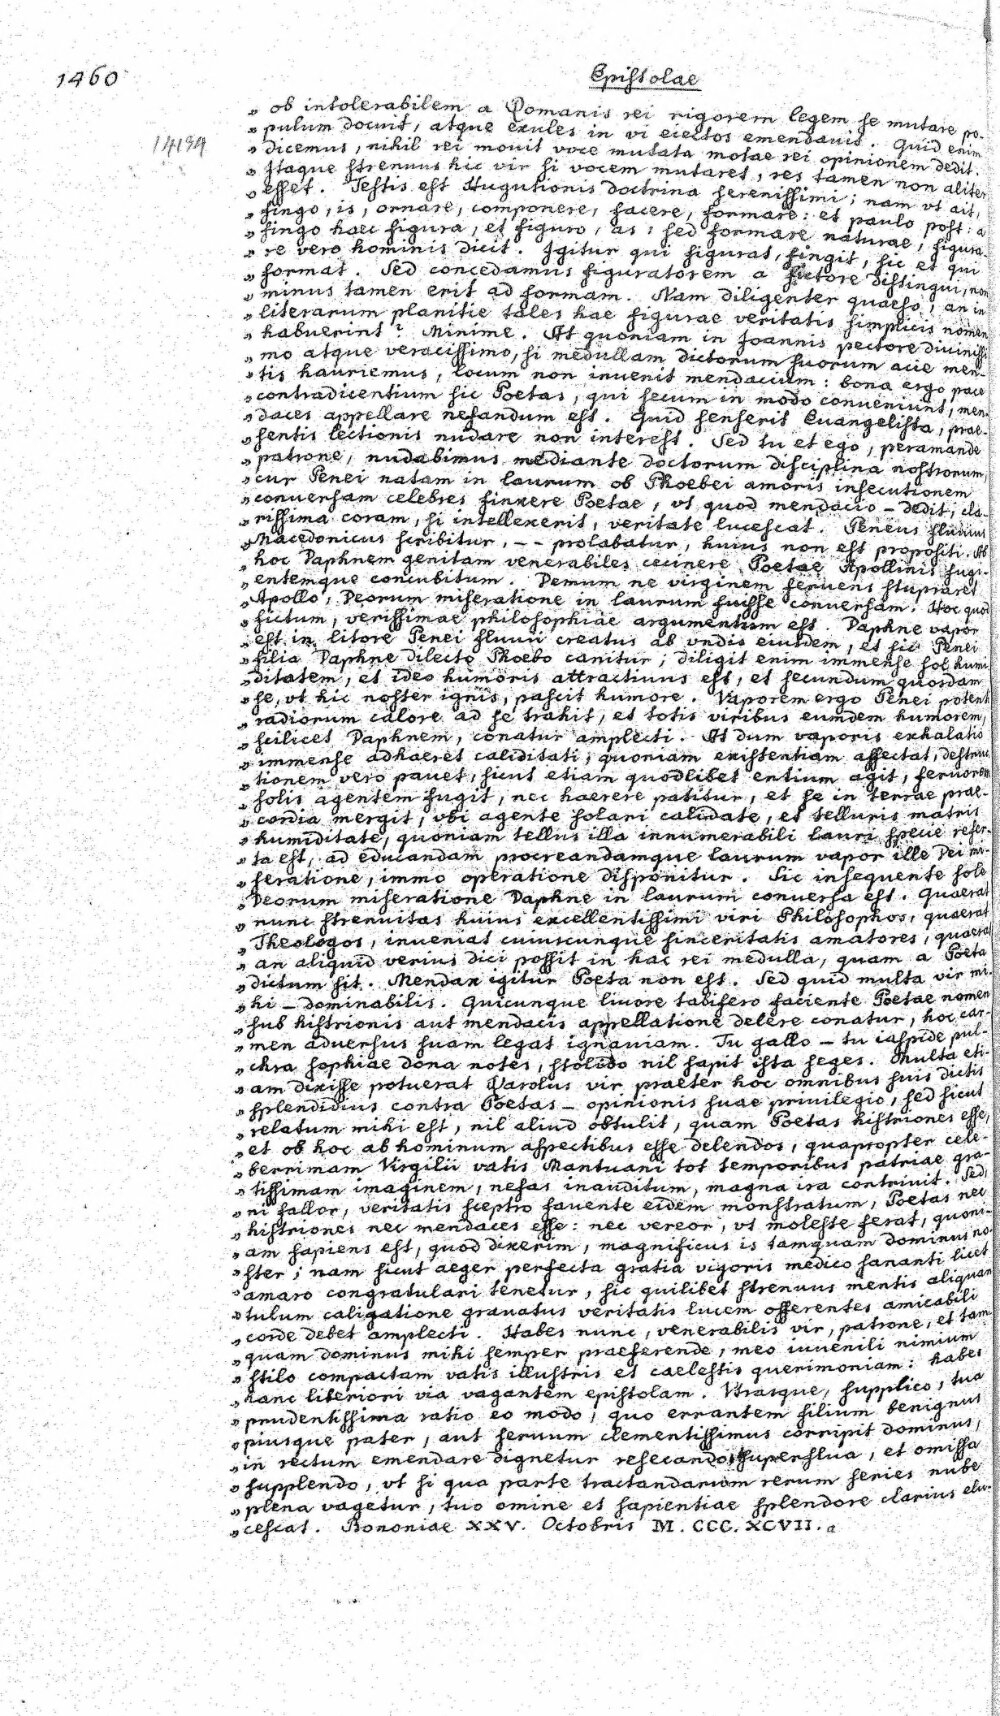 1460
Epistolae
14134
„ ob intolerabilem a Romanis rei rigorem legem se mutare po-
„ pulum docuit, atque exules in vi eiectos emendauit. Quid enim
„ dicemus, nihil rei mouit voce mutata motae rei opinionem dedit.
„ Itaque strenuus hic vir si vocem mutaret, res tamen non aliter
„ esset. Testis est Hugutionis doctrina serenissimi; nam vt ait,
„ fingo, is, ornare, componere, facere, formare: et paulo post: a
„ fingo haec figura, et figuro, as: sed formare naturae, figura-
„ re vero hominis dicit. Igitur qui figurat, fingit, sic et qui
„ format. Sed concedamus figuratorem a fictore distingui, non
„ minus tamen erit ad formam. Nam diligenter quaeso, an in
„ literarum planitie tales hae figurae veritatis simplicis nomen
„ habuerint? Minime. At quoniam in Joannis pectore diuinissi-
„ mo atque veracissimo, si medullam dictorum suorum acie men-
„ tis hauriemus, locum non inuenit mendacium: bona ergo pace
„ contradicentium sic Poetas, qui secum in modo conueniunt, men-
„ daces appellare nefandum est. Quid senserit Euangelista, prae-
„ sentis lectionis nudare non interest. Sed tu et ego, peramande
„ patrone, nudabimus mediante doctorum disciplina nostrorum,
„ cur Penei natam in laurum ob Phoebei amoris insecutionem
„ conuersam celebres finxere Poetae, vt quod mendacio - dedit, cla-
„ rissima coram, si intellexerit, veritate lucescat. Peneus fluuius
„ Macedonicus scribitur, -- prolabatur, huius non est propositi. Ab
„ hoc Daphnem genitam venerabiles cecinere Poetae Apollinis fugi-
„ entemque concubitum. Demum ne virginem feruens stupraret
„ Apollo, Deorum miseratione in laurum fuisse conuersam. Hoc quod
„ fictum, verissimae philosophiae argumentum est. Daphne vapor
„ est in litore Penei fluuii creatus ab vndis eiusdem, et sic Penei
„ filia Daphne dilecte Phoebo canitur; diligit enim immense sol humi-
„ ditatem, et ideo humoris attractiuus est, et secundum quosdam
„ se, vt hic noster ignis, pascit humore. Vaporem ergo Penei potenti
„ radiorum calore ad se trahit, et totis viribus eumdem humorem,
„ scilicet Daphnem, conatur amplecti. At dum vaporis exhalatio
„ immense adhaeret caliditati, quoniam existentiam affectat, destruc-
„ tionem vero pauet, sicut etiam quodlibet entium agit, feruorem
„ solis agentem fugit, nec haerere patitur, et se in terrae prae-
„ cordia mergit, vbi agente solari calidate, et telluris matris
„ humiditate, quoniam tellus illa innumerabili lauri specie refer-
„ ta est, ad educandam procreandamque laurum vapor ille Dei mi-
„ seratione, immo operatione disponitur. Sic insequente sole
„ Deorum miseratione Daphne in laurum conuersa est. Quaerat
„ nunc strenuitas huius excellentissimi viri Philosophos, quaerat
„ Theologos, inueniat cuiuscunque sinceritatis amatores, quaerat
„ an aliquid verius dici possit in hac rei medulla, quam a Poeta
„ dictum sit. Mendax igitur Poeta non est. Sed quid multa vir mi-
„ hi - dominabilis. Quicunque liuore tabifero faciente Poetae nomen
„ sub histrionis aut mendacis appellatione delere conatur, hoc car-
„ men aduersus suam legat ignauiam. Tu gallo - tu iaspide pul-
„ chra sophiae dona notes, stolido nil sapit ista seges. Multa eti-
„ am dixisse potuerat Carolus vir praeter hoc omnibus suis dictis
„ splendidius contra Poetas - opinionis suae priuilegio, sed sicut
„ relatum mihi est, nil aliud obtulit, quam Poetas histriones esse,
„ et ob hoc ab hominum aspectibus esse delendos, quapropter cele-
„ berrimam Virgilii vatis Mantuani tot temporibus patriae gra-
„ tissimam imaginem, nefas inauditum, magna ira contriuit. Sed
„ ni fallor, veritatis sceptro fauente eidem monstratum, Poetas nec
„ histriones nec mendaces esse: nec vereor, vt moleste ferat, quoni-
„ am sapiens est, quod dixerim, magnificus is tamquam dominus no-
„ ster; nam sicut aeger perfecta gratia vigoris medico sananti licet
„ amaro congratulari tenetur, sic quilibet strenuus mentis aliquan-
„ tulum caligatione grauatus veritatis lucem offerentes amicabili
„ corde debet amplecti. Habes nunc, venerabilis vir, patrone, et tam-
„ quam dominus mihi semper praeferende, meo iuuenili nimium
„ stilo compactam vatis illustris et caelestis querimoniam: habes
„ hanc liberiori via vagantem epistolam. Vtrasque, supplico, tua
„ prudentissima ratio eo modo, quo errantem filium benignus
„ piusque pater, aut seruum clementissimus corripit dominus,
„ in rectum emendare dignetur resecando superflua, et omissa
„ supplendo, vt si qua parte tractandarum rerum series nube
„ plena vagetur, tuo omine et sapientiae splendore clarius elu-
„ cescat. Bononiae XXV. Octobris M. CCC. XCVII. a